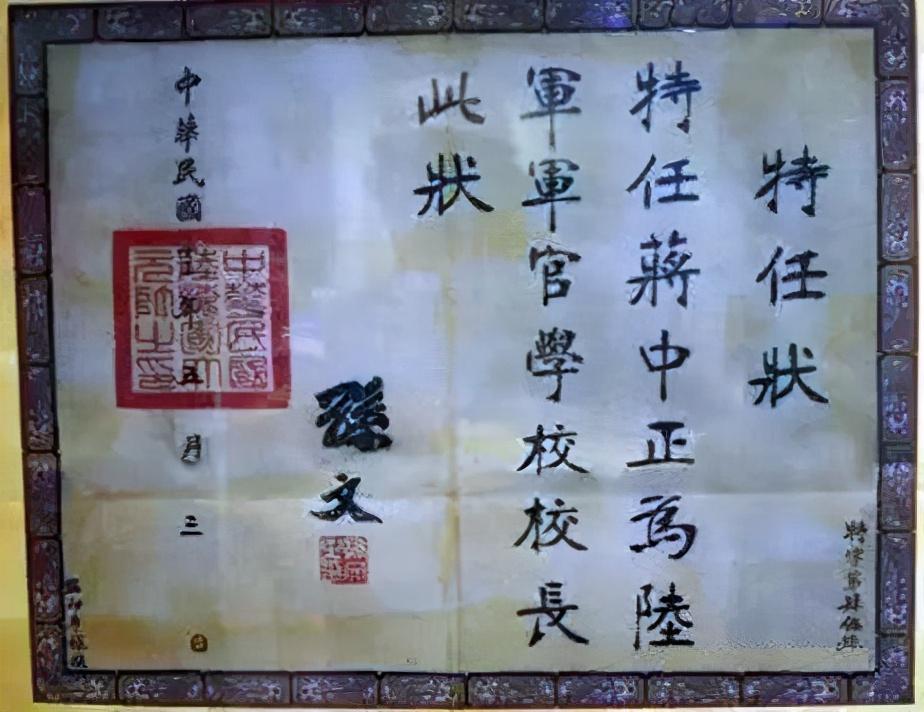 特任狀
特任蔣中正為陸
軍軍官學校校長
此狀
孫文
中華民國 年五月三
中華民國
陸海軍大
元帥之印